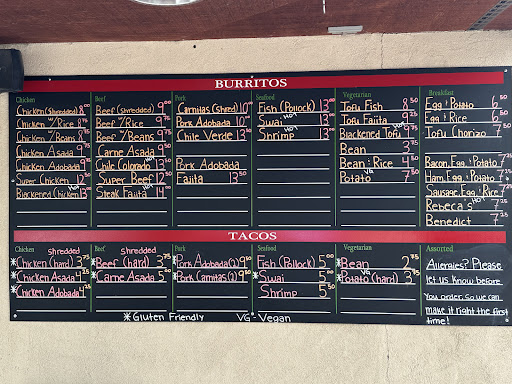 BURRITOS
Chicken
Chicken (Shredded) 8.00
Chicken w/Rice 8.75
Chicken w/Beans 8.75
Chicken Asada 9.75
Chicken Adobada 9.75
Super Chicken 12.50
Blackened Chicken HOT 13
Beef
Beef (Shredded) 9.00
Beef w/Rice 9.75
Beef w/Beans 9.75
Carne Asada 9.50
Chile Colorado HOT 13
Super Beef 12.50
Steak Fajita HOT 14.00
Pork
Carnitas (Shred) 10
Pork Adobada 10
Chile Verde 13.50
Pork Adobada
Fajita 13.50
Seafood
Fish (Pollock) 13.00
Swai HOT 13.00
Shrimp HOT 13.00
Vegetarian
Tofu Fish 8.50
Tofu Fajita 9.25
Blackened Tofu HOT 9.75
Bean 3.75
Bean & Rice 4.50
Potato VG 7
Breakfast
Egg & Potato 6.50
Egg & Rice 6.50
Tofu Chorizo 7.50
Bacon, Egg & Potato 7.25
Ham, Egg & Potato 7.25
Sausage, Egg & Rice 7.25
Rebeca's HOT 7.25
Benedict 7.25
TACOS
Chicken shredded
*Chicken (hard) 3.75
*Chicken Asada 4.25
*Chicken Adobada 4.25
Beef shredded
*Beef (hard) 3.75
*Carne Asada 5.00
Pork
*Pork Adobada (2) 9.50
*Pork Carnitas (2) 9.50
Seafood
Fish (Pollock) 5.00
*Swai 5.00
Shrimp 5.50
Vegetarian
*Bean 2.75
*Potato (hard) VG 3.75
Assorted
Allergies? Please
let us know before
you order, so we can
make it right the first
time!
*Gluten Friendly VG - Vegan